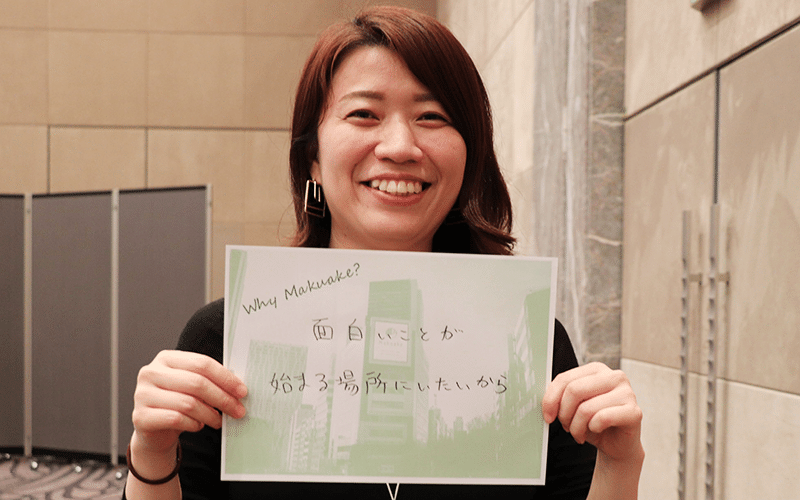 Why Makuake?
面白いことが
始まる場所にいたいから